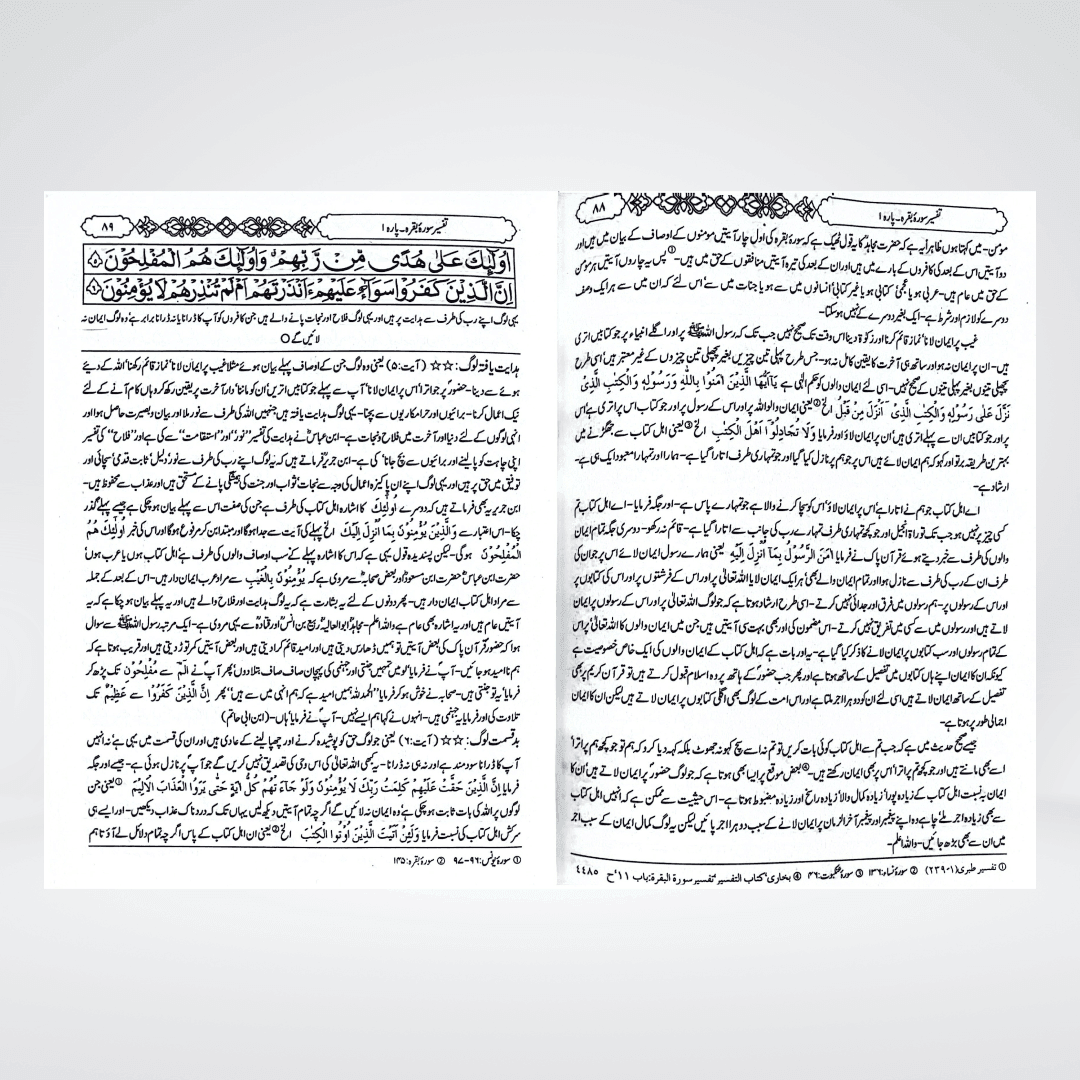 ۸۸
تفسیر سورۂ بقرہ۔ پارہ ۱
مومن۔ میں کہتا ہوں ظاہراً یہ ہے کہ حضرت مجاہدؒ کا یہ قول ٹھیک ہے کہ سورۂ بقرہ کی اول چار آیتیں مومنوں کے اوصاف کے بیان میں ہیں اور
دو آیتیں اس کے بعد کی کافروں کے بارے میں ہیں اور ان کے بعد کی تیرہ آیتیں منافقوں کے حق میں ہیں۔① پس یہ چاروں آیتیں ہر مومن
کے حق میں عام ہیں۔ عربی ہو یا عجمی، کتابی ہو یا غیر کتابی، انسانوں میں سے ہو یا جنات میں سے، اس لئے کہ ان میں سے ہر ایک وصف
دوسرے کو لازم اور شرط ہے۔ ایک بغیر دوسرے کے نہیں ہو سکتا۔
غیب پر ایمان لانا، نماز قائم کرنا اور زکوٰۃ دینا اس وقت تک صحیح نہیں جب تک کہ رسول اللہ ﷺ پر اور اگلے انبیاء پر جو کتابیں اتری
ہیں۔ ان پر ایمان نہ ہو اور ساتھ ہی آخرت کا یقین کامل نہ ہو۔ جس طرح پہلی تین چیزیں بغیر پچھلی تین چیزوں کے غیر معتبر ہیں، اسی طرح
پچھلی تینوں بغیر پہلی تینوں کے صحیح نہیں۔ اسی لئے ایمان والوں کو حکم الٰہی ہے يٰٓاَيُّهَا الَّذِيْنَ اٰمَنُوْا بِاللّٰهِ وَرَسُوْلِهٖ وَالْكِتٰبِ الَّذِيْ
نَزَّلَ عَلٰى رَسُوْلِهٖ وَالْكِتٰبِ الَّذِيْٓ اَنْزَلَ مِنْ قَبْلُ الخ② یعنی ایمان والو اللہ پر اور اس کے رسول پر اور جو کتاب اس پر اتری ہے اس
پر اور جو کتابیں ان سے پہلے اتری ہیں ان پر ایمان لاؤ اور فرمایا وَلَا تُجَادِلُوْٓا اَهْلَ الْكِتٰبِ الخ③ یعنی اہل کتاب سے جھگڑنے میں
بہترین طریقہ برتو اور کہو کہ ہم ایمان لائے ہیں اس پر جو ہم پر نازل کیا گیا اور جو تمہاری طرف اتارا گیا ہے۔ ہمارا اور تمہارا معبود ایک ہی ہے۔
ارشاد ہے۔
اے اہل کتاب جو ہم نے اتارا ہے اس پر ایمان لاؤ اس کو سچا کرنے والا ہے جو تمہارے پاس ہے۔ اور جگہ فرمایا۔ اے اہل کتاب تم
کسی چیز پر نہیں ہو جب تک توراۃ، انجیل اور جو کچھ تمہاری طرف تمہارے رب کی جانب سے اتارا گیا ہے۔ قائم نہ رکھو۔ دوسری جگہ تمام ایمان
والوں کی طرف سے خبر دیتے ہوئے قرآن پاک نے فرمایا اٰمَنَ الرَّسُوْلُ بِمَآ اُنْزِلَ اِلَيْهِ یعنی ہمارے رسول ایمان لائے اس پر جو ان کی
طرف ان کے رب کی طرف سے نازل ہوا اور تمام ایمان والے بھی، ہر ایک ایمان لایا اللہ تعالیٰ پر اور اس کے فرشتوں پر اور اس کی کتابوں پر
اور اس کے رسولوں پر۔ ہم رسولوں میں فرق اور جدائی نہیں کرتے۔ اسی طرح ارشاد ہوتا ہے کہ جو لوگ اللہ تعالیٰ پر اور اس کے رسولوں پر ایمان
لاتے ہیں اور رسولوں میں سے کسی میں تفریق نہیں کرتے۔ اس مضمون کی اور بھی بہت سی آیتیں ہیں جن میں ایمان والوں کا اللہ تعالیٰ پر اس
کے تمام رسولوں اور سب کتابوں پر ایمان لانے کا ذکر کیا گیا ہے۔ یہ اور بات ہے کہ اہل کتاب کے ایمان والوں کی ایک خاص خصوصیت ہے
کیونکہ ان کا ایمان اپنے ہاں کتابوں میں تفصیل کے ساتھ ہوتا ہے اور پھر جب حضورؐ کے ہاتھ پر وہ اسلام قبول کرتے ہیں تو قرآن کریم پر بھی
تفصیل کے ساتھ ایمان لاتے ہیں اسی لئے ان کو دوہرا اجر ملتا ہے اور اس امت کے لوگ بھی اگلی کتابوں پر ایمان لاتے ہیں لیکن ان کا ایمان
اجمالی طور پر ہوتا ہے۔
جیسے صحیح حدیث میں ہے کہ جب تم سے اہل کتاب کوئی بات کریں تو تم نہ اسے سچ کہو نہ جھوٹ بلکہ کہہ دیا کرو کہ ہم تو جو کچھ ہم پر اترا
اسے بھی مانتے ہیں اور جو کچھ تم پر اترا اس پر بھی ایمان رکھتے ہیں۔④ بعض موقع پر ایسا بھی ہوتا ہے کہ جو لوگ حضورؐ پر ایمان لاتے ہیں، ان کا
ایمان بہ نسبت اہل کتاب کے زیادہ پورا، زیادہ کمال والا، زیادہ راسخ اور زیادہ مضبوط ہوتا ہے۔ اس حیثیت سے ممکن ہے کہ انہیں اہل کتاب
سے بھی زیادہ اجر ملے چاہے وہ اپنے پیغمبر اور پیغمبر آخر الزمان پر ایمان لانے کے سبب دوہرا اجر پائیں لیکن یہ لوگ کمال ایمان کے سبب اجر
میں ان سے بھی بڑھ جائیں۔ واللہ اعلم۔
① تفسیر طبری (۱-۲۳۹) ② سورۂ نساء:۱۳۶ ③ سورۂ عنکبوت:۴۶ ④ بخاری، کتاب التفسیر، تفسیر سورۃ البقرۃ: باب ۱۱، ح ۴۴۸۵
۸۹
تفسیر سورۂ بقرہ۔ پارہ ۱
اُولٰٓئِكَ عَلٰى هُدًى مِّنْ رَّبِّهِمْ وَاُولٰٓئِكَ هُمُ الْمُفْلِحُوْنَ ۵
اِنَّ الَّذِيْنَ كَفَرُوْا سَوَآءٌ عَلَيْهِمْ ءَاَنْذَرْتَهُمْ اَمْ لَمْ تُنْذِرْهُمْ لَا يُؤْمِنُوْنَ ۶
یہی لوگ اپنے رب کی طرف سے ہدایت پر ہیں اور یہی لوگ فلاح اور نجات پانے والے ہیں جن کافروں کو آپ کا ڈرانا یا نہ ڈرانا برابر ہے وہ لوگ ایمان نہ
لائیں گے ○
ہدایت یافتہ لوگ: ☆☆ (آیت:۵) یعنی وہ لوگ جن کے اوصاف پہلے بیان ہوئے مثلاً غیب پر ایمان لانا، نماز قائم رکھنا، اللہ کے دیئے
ہوئے سے دینا۔ حضورؐ پر جو اترا اس پر ایمان لانا، آپ سے پہلے جو کتابیں اتریں ان کو ماننا، دار آخرت پر یقین رکھ کر وہاں کام آنے کے لئے
نیک اعمال کرنا۔ برائیوں اور حرام کاریوں سے بچنا۔ یہی لوگ ہدایت یافتہ ہیں جنہیں اللہ کی طرف سے نور ملا اور بیان و بصیرت حاصل ہوا اور
انہی لوگوں کے لئے دنیا اور آخرت میں فلاح و نجات ہے۔ ابن عباسؓ نے ہدایت کی تفسیر "نور" اور "استقامت" سے کی ہے اور "فلاح" کی تفسیر
اپنی چاہت کو پا لینے اور برائیوں سے بچ جانا کی ہے۔ ابن جریرؒ فرماتے ہیں کہ یہ لوگ اپنے رب کی طرف سے نور، دلیل، ثابت قدمی، سچائی اور
توفیق میں حق پر ہیں اور یہی لوگ اپنے ان پاکیزہ اعمال کی وجہ سے نجات، ثواب اور جنت کی ہمیشگی پانے کے مستحق ہیں اور عذاب سے محفوظ ہیں۔
ابن جریر یہ بھی فرماتے ہیں کہ دوسرے اُولٰٓئِكَ کا اشارہ اہل کتاب کی طرف ہے جن کی صفت اس سے پہلے بیان ہو چکی ہے جیسے پہلے گذر
چکا۔ اس اعتبار سے وَالَّذِيْنَ يُؤْمِنُوْنَ بِمَآ اُنْزِلَ اِلَيْكَ الخ پہلے کی آیت سے جدا ہوگا اور مبتدا بن کر مرفوع ہوگا اور اس کی خبر اُولٰٓئِكَ هُمُ
الْمُفْلِحُوْنَ ہوگی۔ لیکن پسندیدہ قول یہی ہے کہ اس کا اشارہ پہلے کے سب اوصاف والوں کی طرف ہے، اہل کتاب ہوں یا عرب ہوں،
حضرت ابن عباسؓ حضرت ابن مسعودؓ اور بعض صحابہؓ سے مروی ہے کہ يُؤْمِنُوْنَ بِالْغَيْبِ سے مراد عرب ایمان دار ہیں۔ اس کے بعد کے جملہ
سے مراد اہل کتاب ایمان دار ہیں۔ پھر دونوں کے لئے یہ بشارت ہے کہ یہ لوگ ہدایت اور فلاح والے ہیں اور یہ پہلے بیان ہو چکا ہے کہ یہ
آیتیں عام ہیں اور یہ اشارہ بھی عام ہے واللہ اعلم۔ مجاہدؒ ابو العالیہؒ ربیع بن انسؒ اور قتادہؒ سے یہی مروی ہے۔ ایک مرتبہ رسول اللہ ﷺ سے سوال
ہوا کہ حضورؐ قرآن پاک کی بعض آیتیں تو ہمیں ڈھارس دیتی ہیں اور امید قائم کرا دیتی ہیں اور بعض آیتیں کمر توڑ دیتی ہیں اور قریب ہوتا ہے کہ
ہم نا امید ہو جائیں۔ آپ نے فرمایا، لو میں تمہیں جنتی اور جہنمی کی پہچان صاف صاف بتلا دوں، پھر آپ نے الٓمّٓ سے مُفْلِحُوْنَ تک پڑھ کر
فرمایا، یہ تو جنتی ہیں۔ صحابہؓ نے خوش ہو کر فرمایا "الحمدللہ ہمیں امید ہے کہ ہم انہی میں سے ہیں" پھر اِنَّ الَّذِيْنَ كَفَرُوْا سے عَظِيْمٌ تک
تلاوت کی اور فرمایا یہ جہنمی ہیں۔ انہوں نے کہا ہم ایسے نہیں۔ آپؐ نے فرمایا، ہاں۔ (ابن ابی حاتم)
بدقسمت لوگ: ☆☆ (آیت:۶) یعنی جو لوگ حق کو پوشیدہ کرنے اور چھپا لینے کے عادی ہیں اور ان کی قسمت میں یہی ہے، نہ انہیں
آپ کا ڈرانا سود مند ہے اور نہ ہی نہ ڈرانا۔ یہ کبھی اللہ تعالیٰ کی اس وحی کی تصدیق نہیں کریں گے جو آپؐ پر نازل ہوئی ہے۔ جیسے اور جگہ
فرمایا اِنَّ الَّذِيْنَ حَقَّتْ عَلَيْهِمْ كَلِمَتُ رَبِّكَ لَا يُؤْمِنُوْنَ وَلَوْ جَآءَتْهُمْ كُلُّ اٰيَةٍ حَتّٰى يَرَوُا الْعَذَابَ الْاَلِيْمَ ① یعنی جن
لوگوں پر اللہ کی بات ثابت ہو چکی ہے، وہ ایمان نہ لائیں گے اگرچہ تمام آیتیں دیکھ لیں یہاں تک کہ دردناک عذاب دیکھیں۔ اور ایسے ہی
سرکش اہل کتاب کی نسبت فرمایا وَلَئِنْ اَتَيْتَ الَّذِيْنَ اُوْتُوا الْكِتٰبَ الخ② یعنی ان اہل کتاب کے پاس اگرچہ تمام دلائل لے آؤ تاہم
① سورۂ یونس:۹۶-۹۷ ② سورۂ بقرہ:۱۴۵